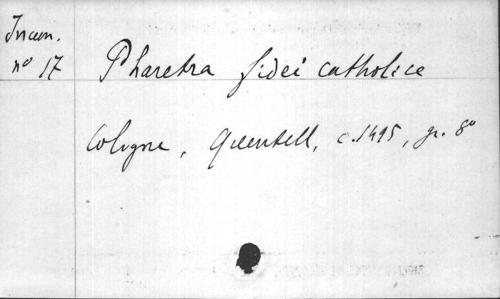 Incun.
n° 17
Pharetra fidei catholice
Cologne, Quentell, c. 1495, gr. 8°